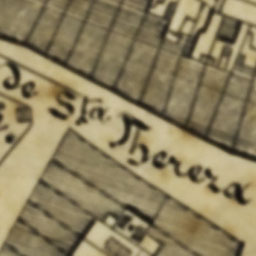 de Sta. Therera